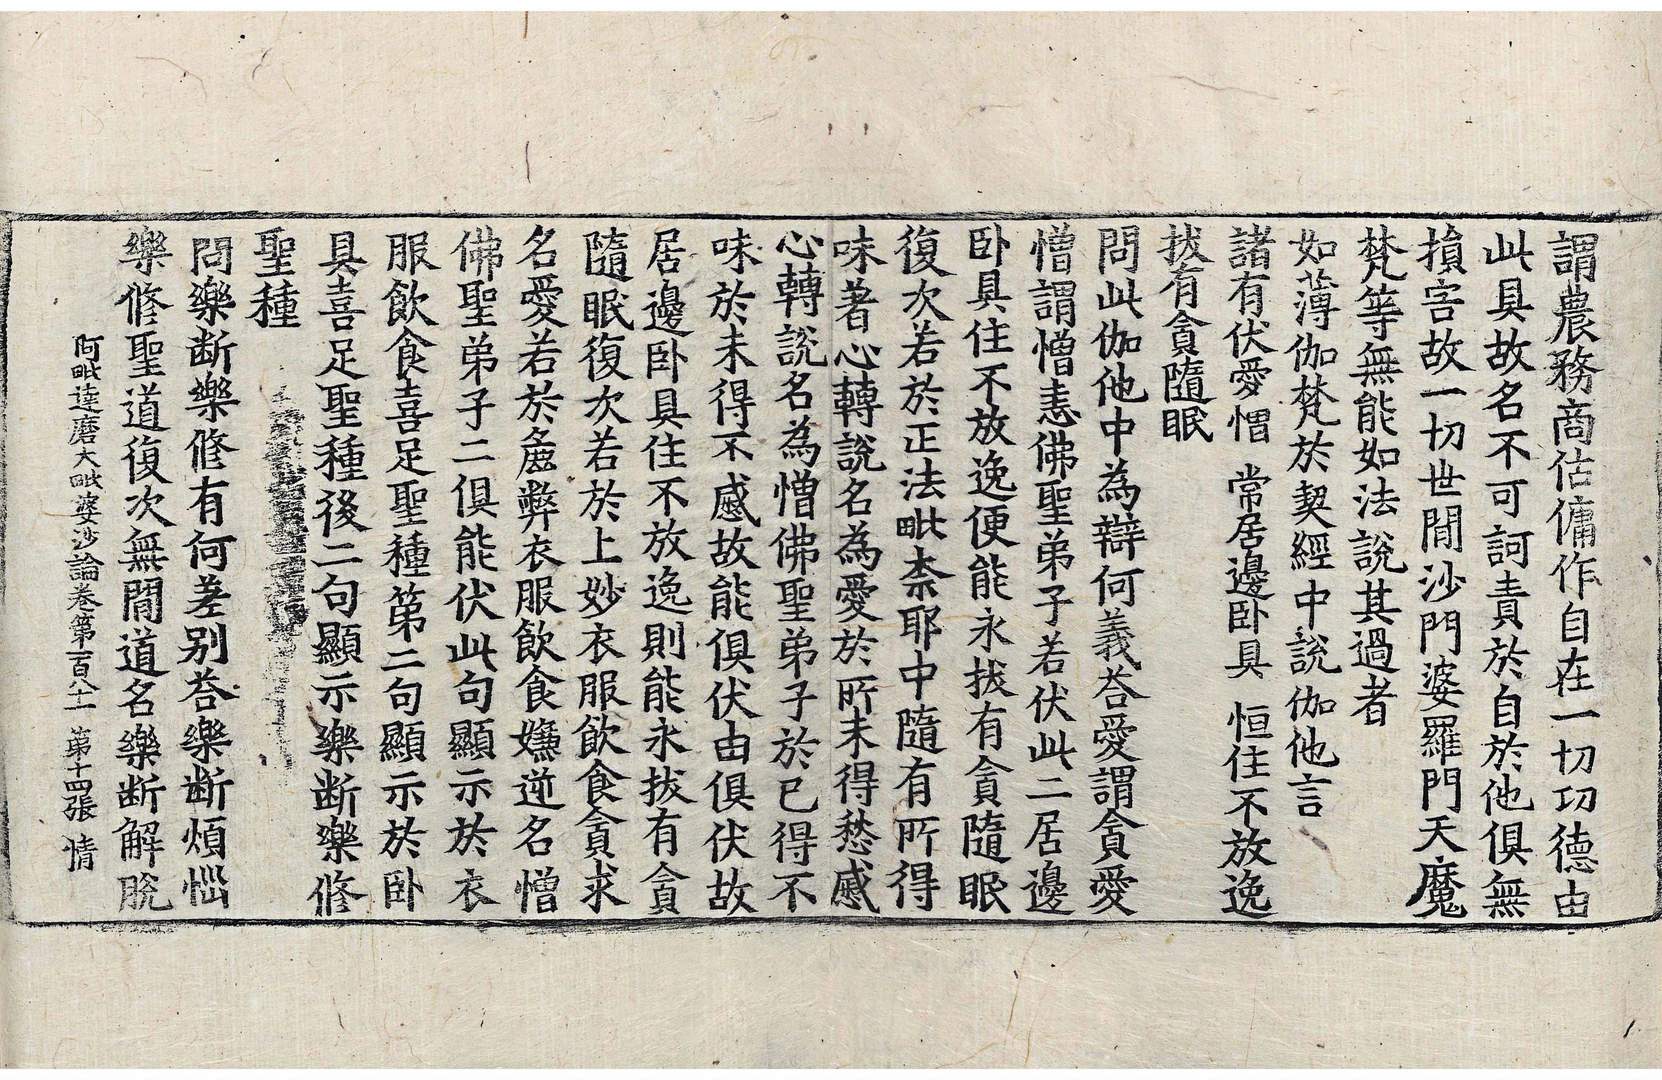 謂農務商估傭作自在一切功德由
此具故名不可訶責於自於他俱無
損害故一切世間沙門婆羅門天魔
梵等無能如法說其過者
如薄伽梵於契經中說伽他言
諸有伏愛憎 常居邊卧具 恒住不放逸
拔有貪隨眠
問此伽他中為辯何義荅愛謂貪愛
憎謂憎恚佛聖弟子若伏此二居邊
卧具住不放逸便能永拔有貪隨眠
復次若於正法毗柰耶中隨有所得
味著心轉說名為愛於所未得愁慼
心轉說名為憎佛聖弟子於已得不
味於未得不慼故能俱伏由俱伏故
居邊卧具住不放逸則能永拔有貪
隨眠復次若於上妙衣服飲食貪求
名愛若於麁弊衣服飲食嫌逆名憎
佛聖弟子二俱能伏此句顯示於衣
服飲食喜足聖種第二句顯示於卧
具喜足聖種後二句顯示樂断樂修
聖種
問樂断樂修有何差别荅樂断煩惱
樂修聖道復次無間道名樂断解脫
阿毗達磨大毗婆沙論卷第一百八十一 第十四張 情